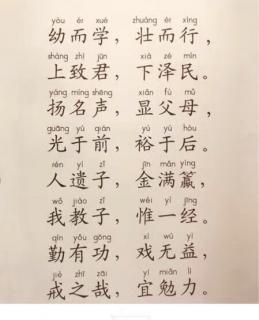 yòu ér xué zhuàng ér xíng
幼而学，壮而行，
shàng zhì jūn xià zé mín
上致君，下泽民。
yáng míng shēng xiǎn fù mǔ
扬名声，显父母，
guāng yú qián yù yú hòu
光于前，裕于后。
rén yí zǐ jīn mǎn yíng
人遗子，金满籯，
wǒ jiào zǐ wéi yì jīng
我教子，惟一经。
qín yǒu gōng xì wú yì
勤有功，戏无益，
jiè zhī zāi yí miǎn lì
戒之哉，宜勉力。